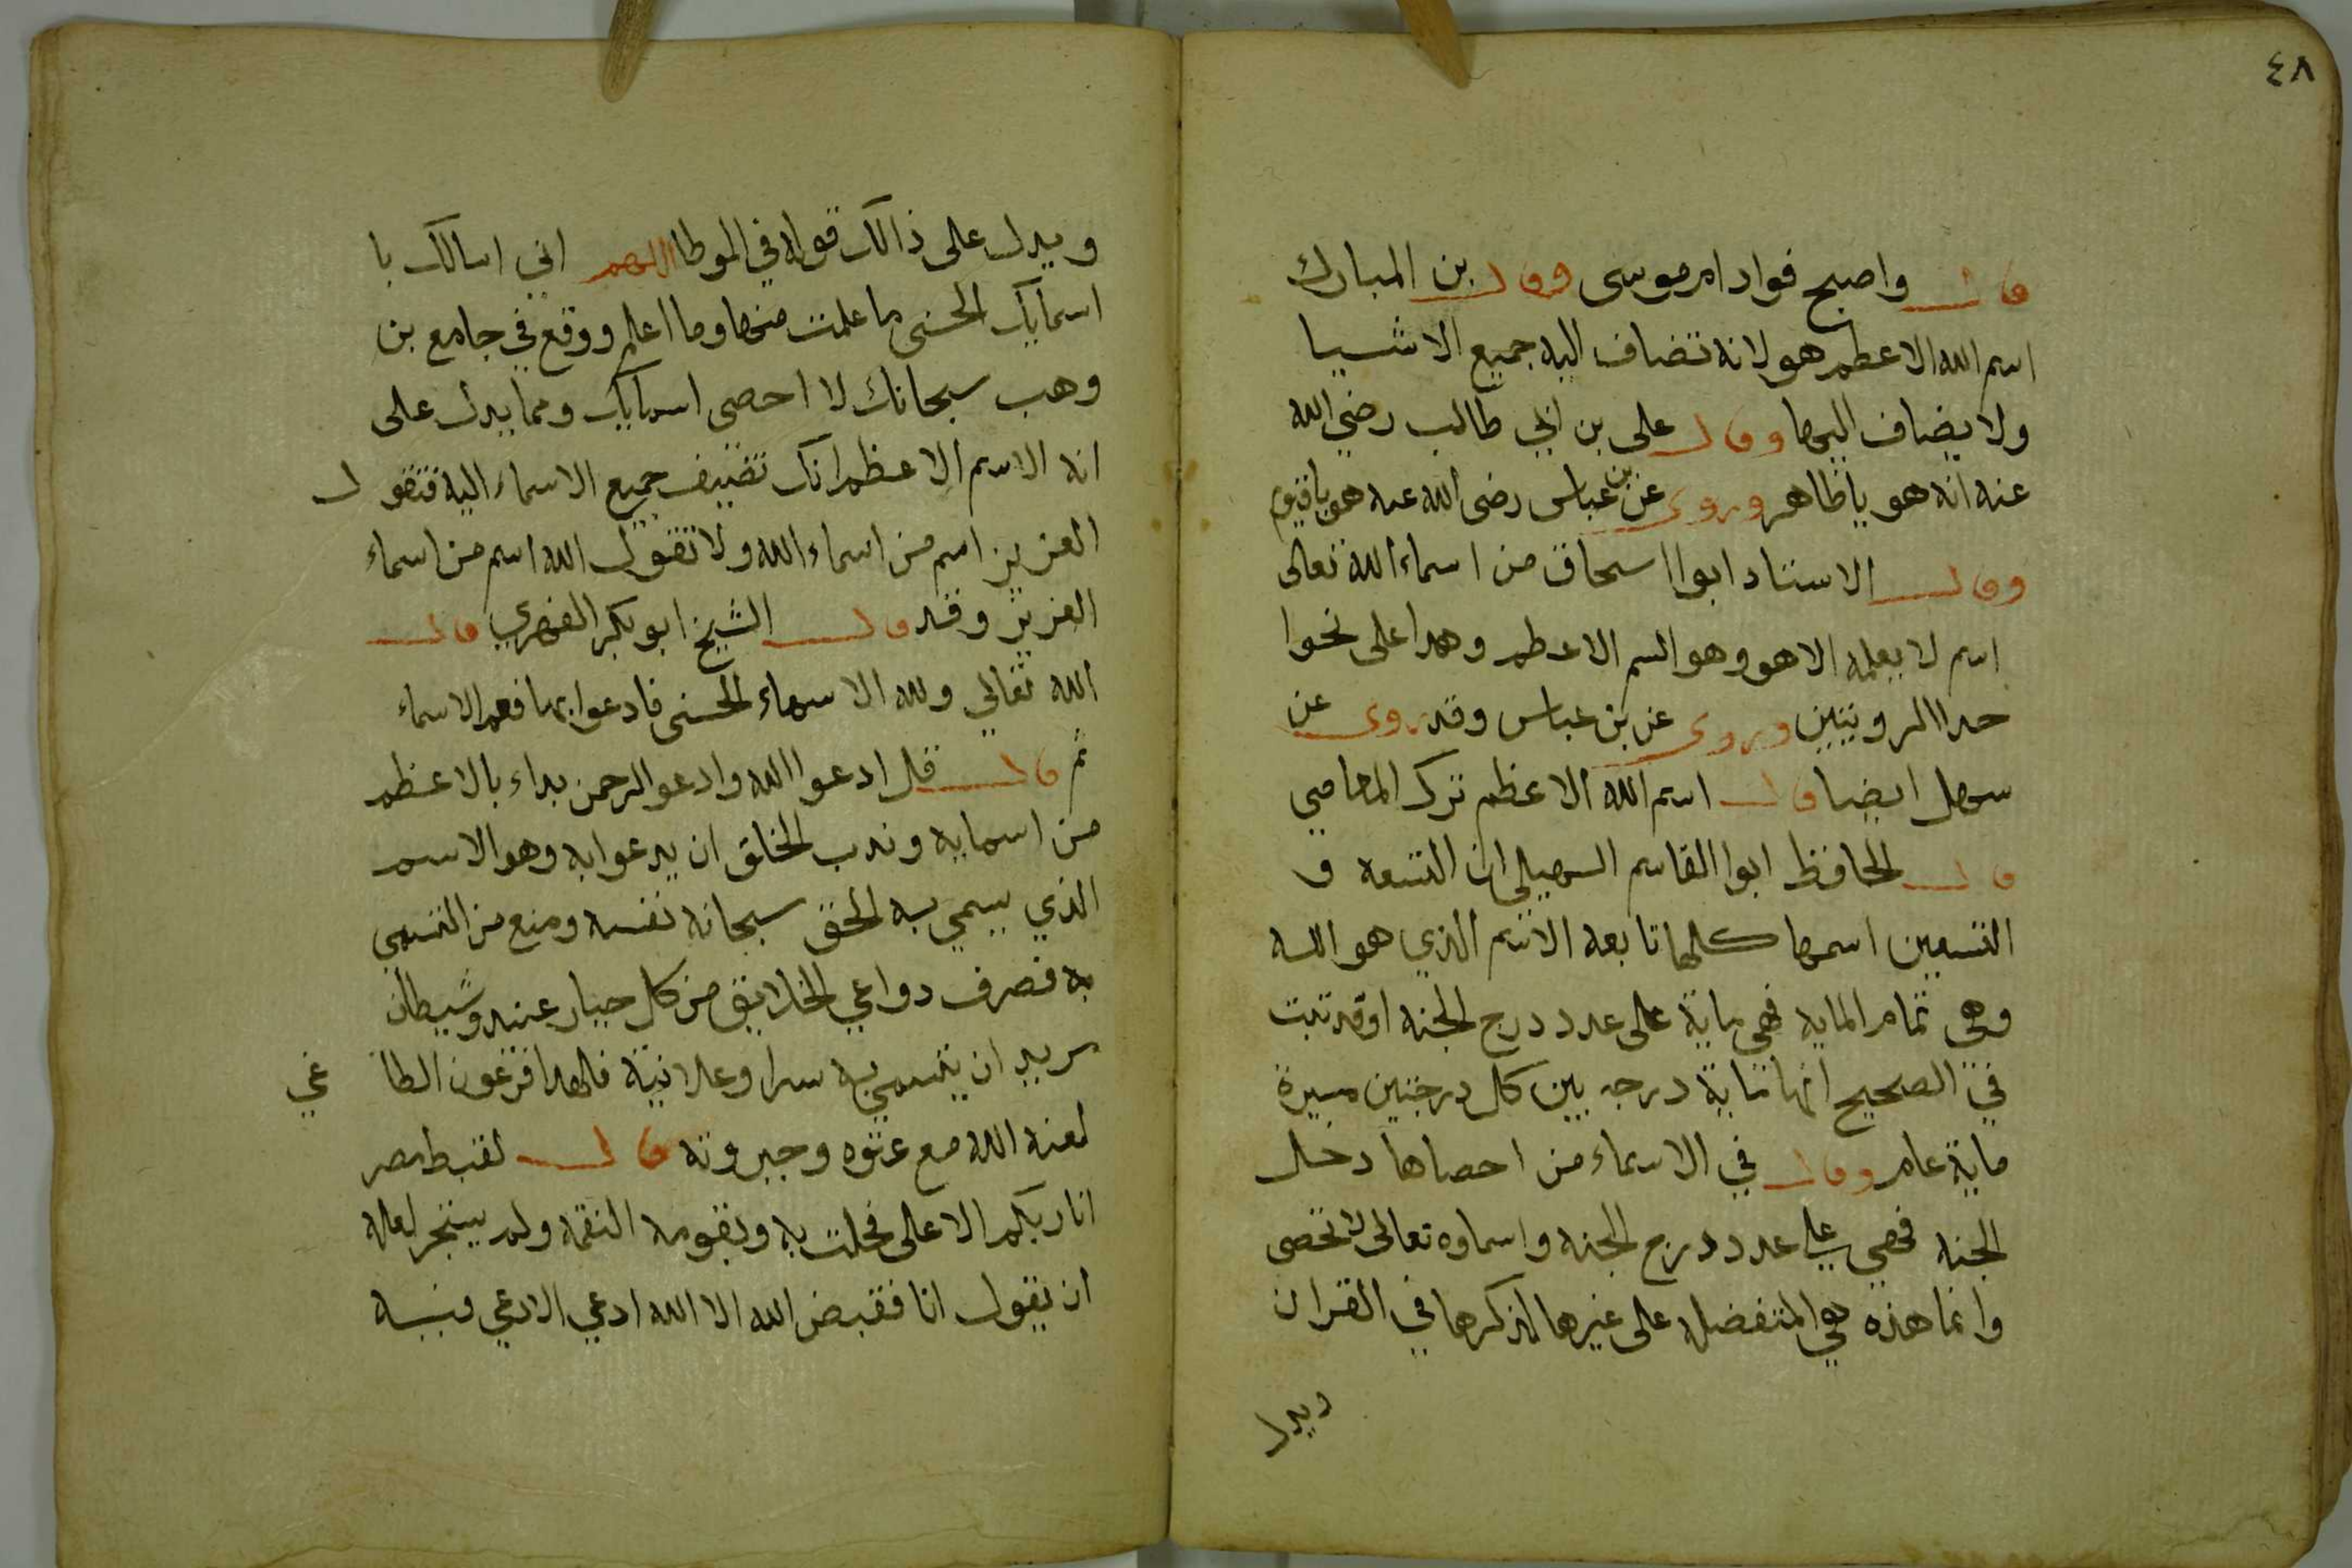 ٤٨
قال واصبح فواد ام موسى وقال بن المبارك
اسم الله الاعظم هو لانه تضاف اليه جميع الاشيا
ولا يضاف اليها وقال على بن ابي طالب رضي الله
عنه انه هو يا ظاهر وروى عن بن عباس رضى الله عنه هو يا قيوم
وقال الاستاد ابوا اسحاق من اسماء الله تعالى
اسم لا يعلمه الا هو وهو السم الاعظم وهدا على نحوا
حدا الرويتين وروى عن بن عباس وقد روى عن
سهل ايضا قال اسم الله الاعظم ترك المعاصي
قال الحافظ ابوا القاسم السهيلى ان التسعه و
التسعين اسمها كلها تابعه الاسم الذي هو الله
وهي تمام المايه فهي ماية على عدد درج الجنه اوقد تبت
في الصحيح انها ماية درجه بين كل درجتين مسيرة
ماية عام وقال في الاسماء من احصاها دخل
الجنه فهي على عدد درج الجنه واسماوه تعالى لا تحصى
وانما هذه هي المتفضله على غيرها لذكرها في القران
ويدل
ويدل على ذالك قوله في الموطا اللهم اني اسالك با
اسمايك الحسنى ما علمت منها وما اعلم ووقع في جامع بن
وهب سبحانك لا احصى اسمايك ومما يدل على
انه الاسم الاعظم انك تضيف جميع الاسماء اليه فتقول
العزيز اسم من اسماء الله ولا تقول الله اسم من اسماء
العزيز وقد قال الشيخ ابو بكر الفهري قال
الله تعالي ولله الاسماء الحسنى فادعوا بها فعم الاسماء
ثم قال قل ادعوا الله وادعو الرحمن بداء بالاعظم
من اسمايه وندب الخلق ان يدعوا به وهو الاسم
الذي يسمي به الحق سبحانه نفسه ومنع من التسمي
به فصرف دواعي الخلايق من كل جبار عنيد وشيطان
مريد ان يتسمي به سرا وعلانية فلهدا فرعون الطا غي
لعنه الله مع عتوه وجبروته قال لقبط مصر
انا ربكم الاعلى فحلت به وبقومه النقمه ولم يتجر لعله
ان يقول انا فقبض الله الا الله ادعي الادعي